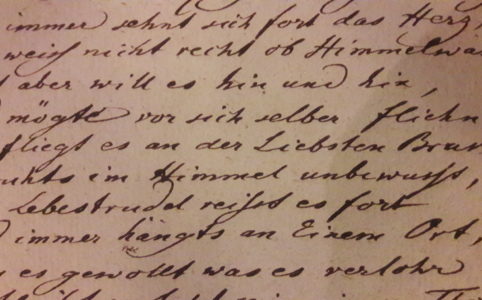 immer sehnt sich fort das Herz
weiß nicht recht ob Himmelwä
aber will es hin und hin,
mögte vor sich selber fliehn
fliegt es an der Liebsten Brus
uhts im Himmel unbewusst,
Lebestrudel reisst es fort
immer hängts an Einem Ort,
es gewollt was es verlohr